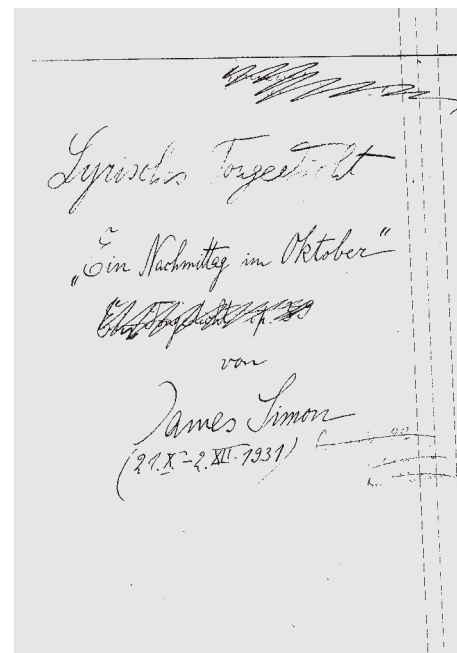 Lyrisches Tongedicht
„Ein Nachmittag im Oktober“
von
James Simon
(21.X.–2.XII.1931)